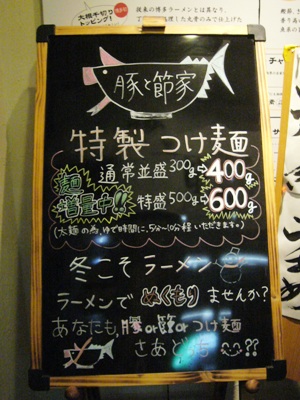 大根千切り
トッピング!
従来の博多ラーメンとは異なり、
豚と節家
特製 つけ麺
麺増量中!!
通常並盛300g→400g
特盛500g→600g
(太麺の為、ゆで時間に、5分~10分程いただきます。)
冬こそラーメン
ラーメンで ぬくもり ませんか?
あなたも、豚or節orつけ麺
さあど
??